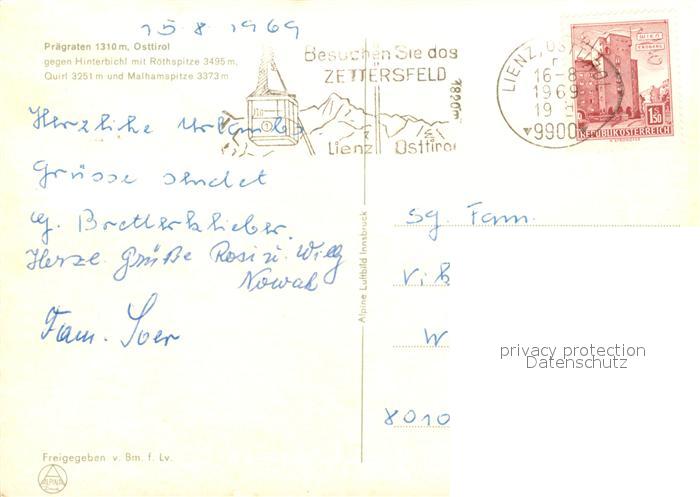 15.8.1969
Prägraten 1310 m, Osttirol
gegen Hinterbichl mit Röthspitze 3495 m,
Quirl 3251 m und Malhamspitze 3373 m
Besuchen Sie das
ZETTERSFELD
1820m
Lienz Osttirol
LIENZ, OSTTIROL
16-8
1969
19
9900
WIEN
ERDBERG
1.50
REPUBLIK ÖSTERREICH
Herzliche Urlaubs
Grüsse sendet
Herzl. Grüße Rosi u. Willy
Nowak
Fam.
Sg. Fam.
Vik
W
8010
Alpine Luftbild Innsbruck
privacy protection
Datenschutz
Freigegeben v. Bm. f. Lv.
ALPINE